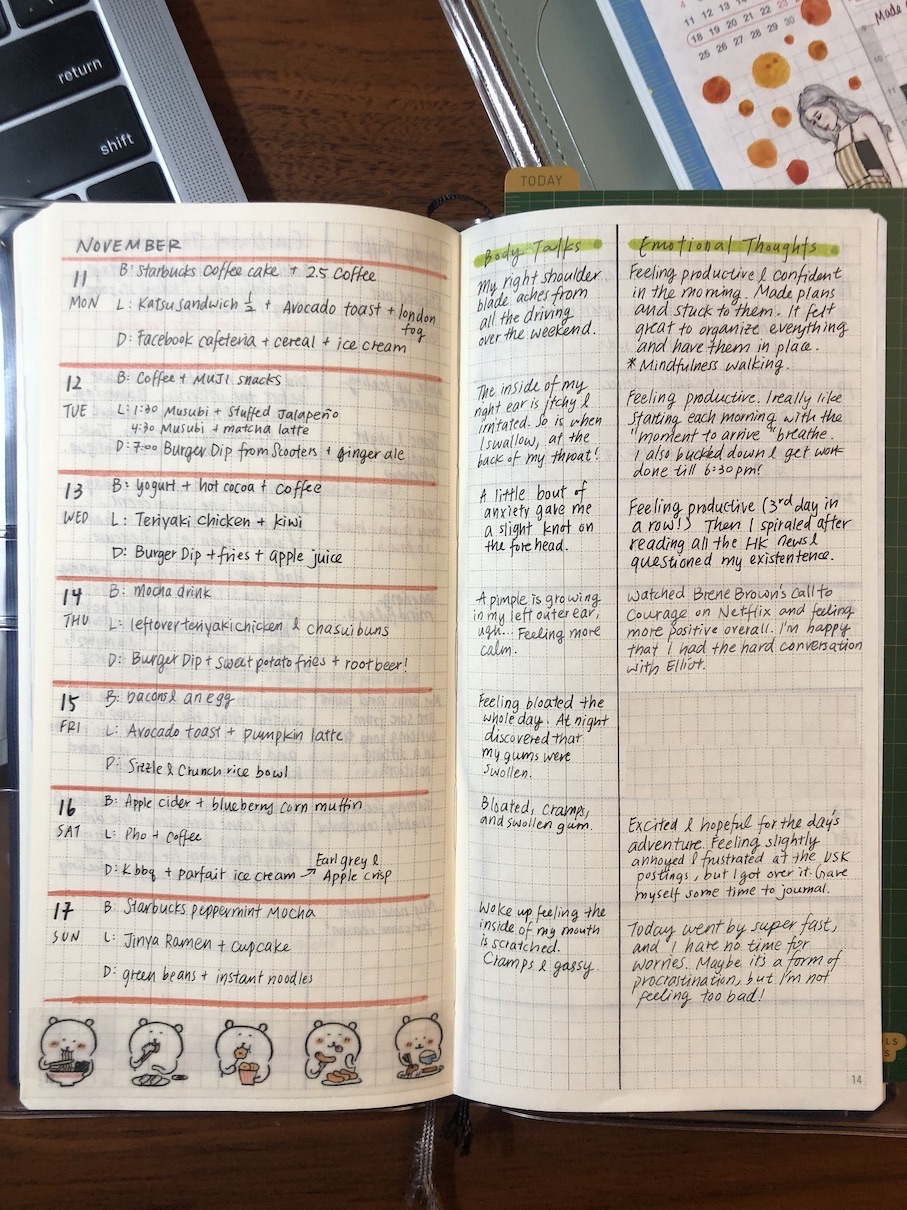 return
shift
4
11 12 13
18 19 20 21 22 23 24
25 26 27 28 29 30
Made
11
TODAY
NOVEMBER
11
MON
B: Starbucks coffee cake + 25 Coffee
L: Katsu sandwich 1/2 + Avocado toast + london
fog
D: Facebook cafeteria + cereal + ice cream
12
TUE
B: Coffee + MUJI snacks
L: 1:30 Musubi + Stuffed Jalapeño
4:30 Musubi + matcha latte
D: 7:00 Burger Dip from Scooters + ginger ale
13
WED
B: yogurt + hot cocoa + coffee
L: Teriyaki Chicken + kiwi
D: Burger Dip + fries + apple juice
14
THU
B: Mocha drink
L: leftover teriyaki chicken & chasui buns
D: Burger Dip + sweet potato fries + root beer!
15
FRI
B: bacons & an egg
L: Avocado toast + pumpkin latte
D: Sizzle & Crunch rice bowl
16
SAT
B: Apple cider + blueberry corn muffin
L: Pho + coffee
D: K bbq + parfait ice cream → Earl grey &
Apple crisp
17
SUN
B: Starbucks peppermint Mocha
L: Jinya Ramen + cupcake
D: green beans + instant noodles
Body Talks
My right shoulder
blade aches from
all the driving
over the weekend.
The inside of my
right ear is itchy &
irritated. So is when
I swallow, at the
back of my throat!
A little bout of
anxiety gave me
a slight knot on
the forehead.
A pimple is growing
in my left outer ear,
ugh... Feeling more
calm.
Feeling bloated the
whole day. At night
discovered that
my gums were
swollen.
Bloated, cramps,
and swollen gum.
Woke up feeling the
inside of my mouth
is scratched.
Cramps & gassy.
Emotional Thoughts
Feeling productive & confident
in the morning. Made plans
and stuck to them. It felt
great to organize everything
and have them in place.
* Mindfulness walking.
Feeling productive. I really like
starting each morning with the
"moment to arrive" breathe.
I also bucked down & get work
done till 6:30pm!
Feeling productive (3rd day in
a row!) Then I spiraled after
reading all the HK news &
questioned my existentence.
Watched Brene Brown's call to
Courage on Netflix and feeling
more positive overall. I'm happy
that I had the hard conversation
with Elliot.
Excited & hopeful for the day's
adventure. Feeling slightly
annoyed & frustrated at the USK
postings, but I got over it. Gave
myself some time to journal.
Today went by super fast,
and I have no time for
worries. Maybe it's a form of
procrastination, but I'm not
feeling too bad!
14